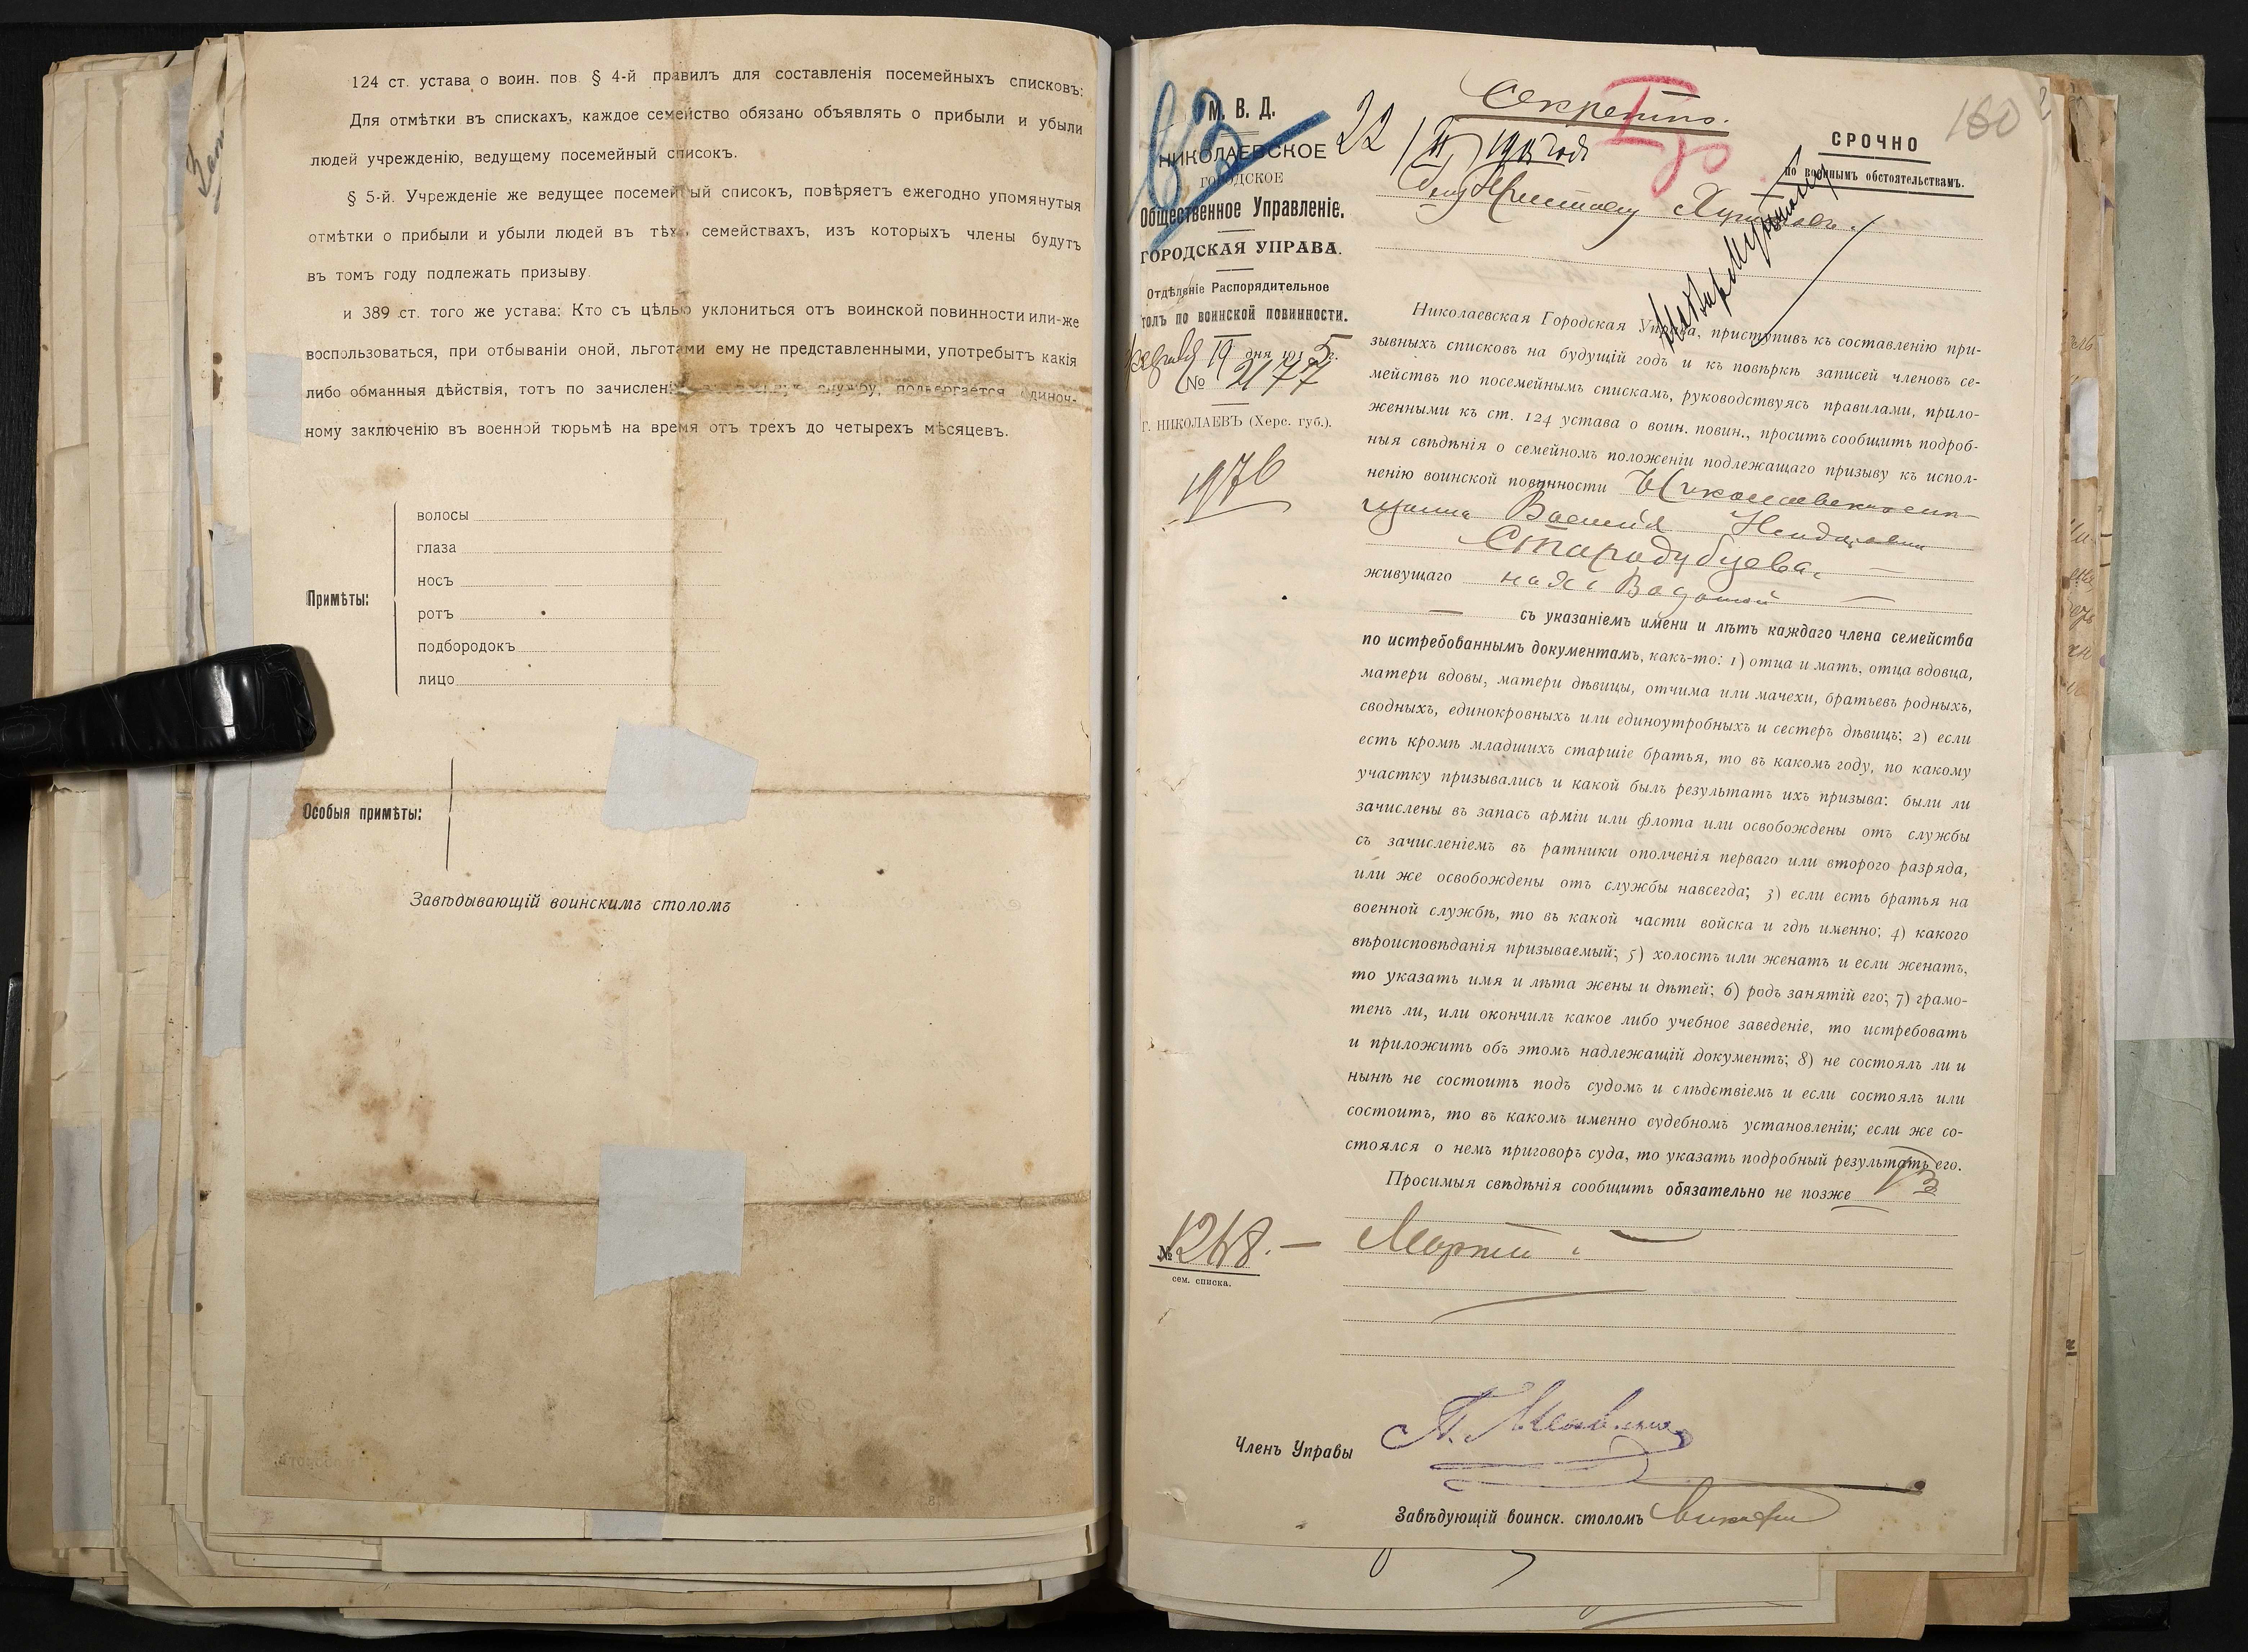 124 ст. устава о воин. пов. § 4-й правилъ для составленія посемейныхъ списковъ:
Для отмѣтки въ спискахъ, каждое семейство обязано объявлять о прибыли и убыли
людей учрежденію, ведущему посемейный списокъ.
§ 5-й. Учрежденіе же ведущее посемейный списокъ, повѣряетъ ежегодно упомянутыя
отмѣтки о прибыли и убыли людей въ тѣхъ семействахъ, изъ которыхъ члены будутъ
въ томъ году подлежать призыву.
и 389 ст. того же устава: Кто съ цѣлью уклониться отъ воинской повинности или-же
воспользоваться, при отбываніи оной, льготами ему не представленными, употребытъ какія
либо обманныя дѣйствія, тотъ по зачисленіи службу, подвергается одиноч-
ному заключенію въ военной тюрьмѣ на время отъ трехъ до четырехъ мѣсяцевъ.
Примѣты:
волосы
глаза
носъ
ротъ
подбородокъ
лицо
Особыя примѣты:
Завѣдывающій воинскимъ столомъ
М. В. Д.
НИКОЛАЕВСКОЕ
ГОРОДСКОЕ
Общественное Управленіе.
ГОРОДСКАЯ УПРАВА.
Отдѣленіе Распорядительное
толъ по воинской повинности.
19 дня 1915 г.
№ 2177
Г. НИКОЛАЕВЪ (Херс. губ.).
1976
№ 1248. —
сем. списка.
Секретно.
22/II 1915 года
160
СРОЧНО
по военнымъ обстоятельствамъ.
Николаевская Городская Управа, приступивъ къ составленію при-
зывныхъ списковъ на будущій годъ и къ повѣркѣ записей членовъ се-
мействъ по посемейнымъ спискамъ, руководствуясь правилами, прило-
женными къ ст. 124 устава о воин. повин., проситъ сообщить подроб-
ныя свѣдѣнія о семейномъ положеніи подлежащаго призыву къ испол-
ненію воинской повинности
щанина Василія
Стародубцева.
живущаго на х.
съ указаніемъ имени и лѣтъ каждаго члена семейства
по истребованнымъ документамъ, какъ-то: 1) отца и мать, отца вдовца,
матери вдовы, матери дѣвицы, отчима или мачехи, братьевъ родныхъ,
сводныхъ, единокровныхъ или единоутробныхъ и сестеръ дѣвицъ; 2) если
есть кромѣ младшихъ старшіе братья, то въ какомъ году, по какому
участку призывались и какой былъ результатъ ихъ призыва: были ли
зачислены въ запасъ арміи или флота или освобождены отъ службы
съ зачисленіемъ въ ратники ополченія перваго или второго разряда,
или же освобождены отъ службы навсегда; 3) если есть братья на
военной службѣ, то въ какой части войска и гдѣ именно; 4) какого
вѣроисповѣданія призываемый; 5) холостъ или женатъ и если женатъ,
то указать имя и лѣта жены и дѣтей; 6) родъ занятій его; 7) грамо-
тенъ ли, или окончилъ какое либо учебное заведеніе, то истребовать
и приложить объ этомъ надлежащій документъ; 8) не состоялъ ли и
нынѣ не состоитъ подъ судомъ и слѣдствіемъ и если состоялъ или
состоитъ, то въ какомъ именно судебномъ установленіи; если же со-
стоялся о немъ приговоръ суда, то указать подробный результатъ его.
Просимыя свѣдѣнія сообщить обязательно не позже
Марта
Членъ Управы
Завѣдующій воинск. столомъ